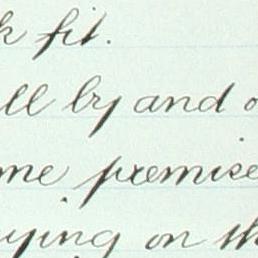 k fit.
ll by and o
me premise
ying on th